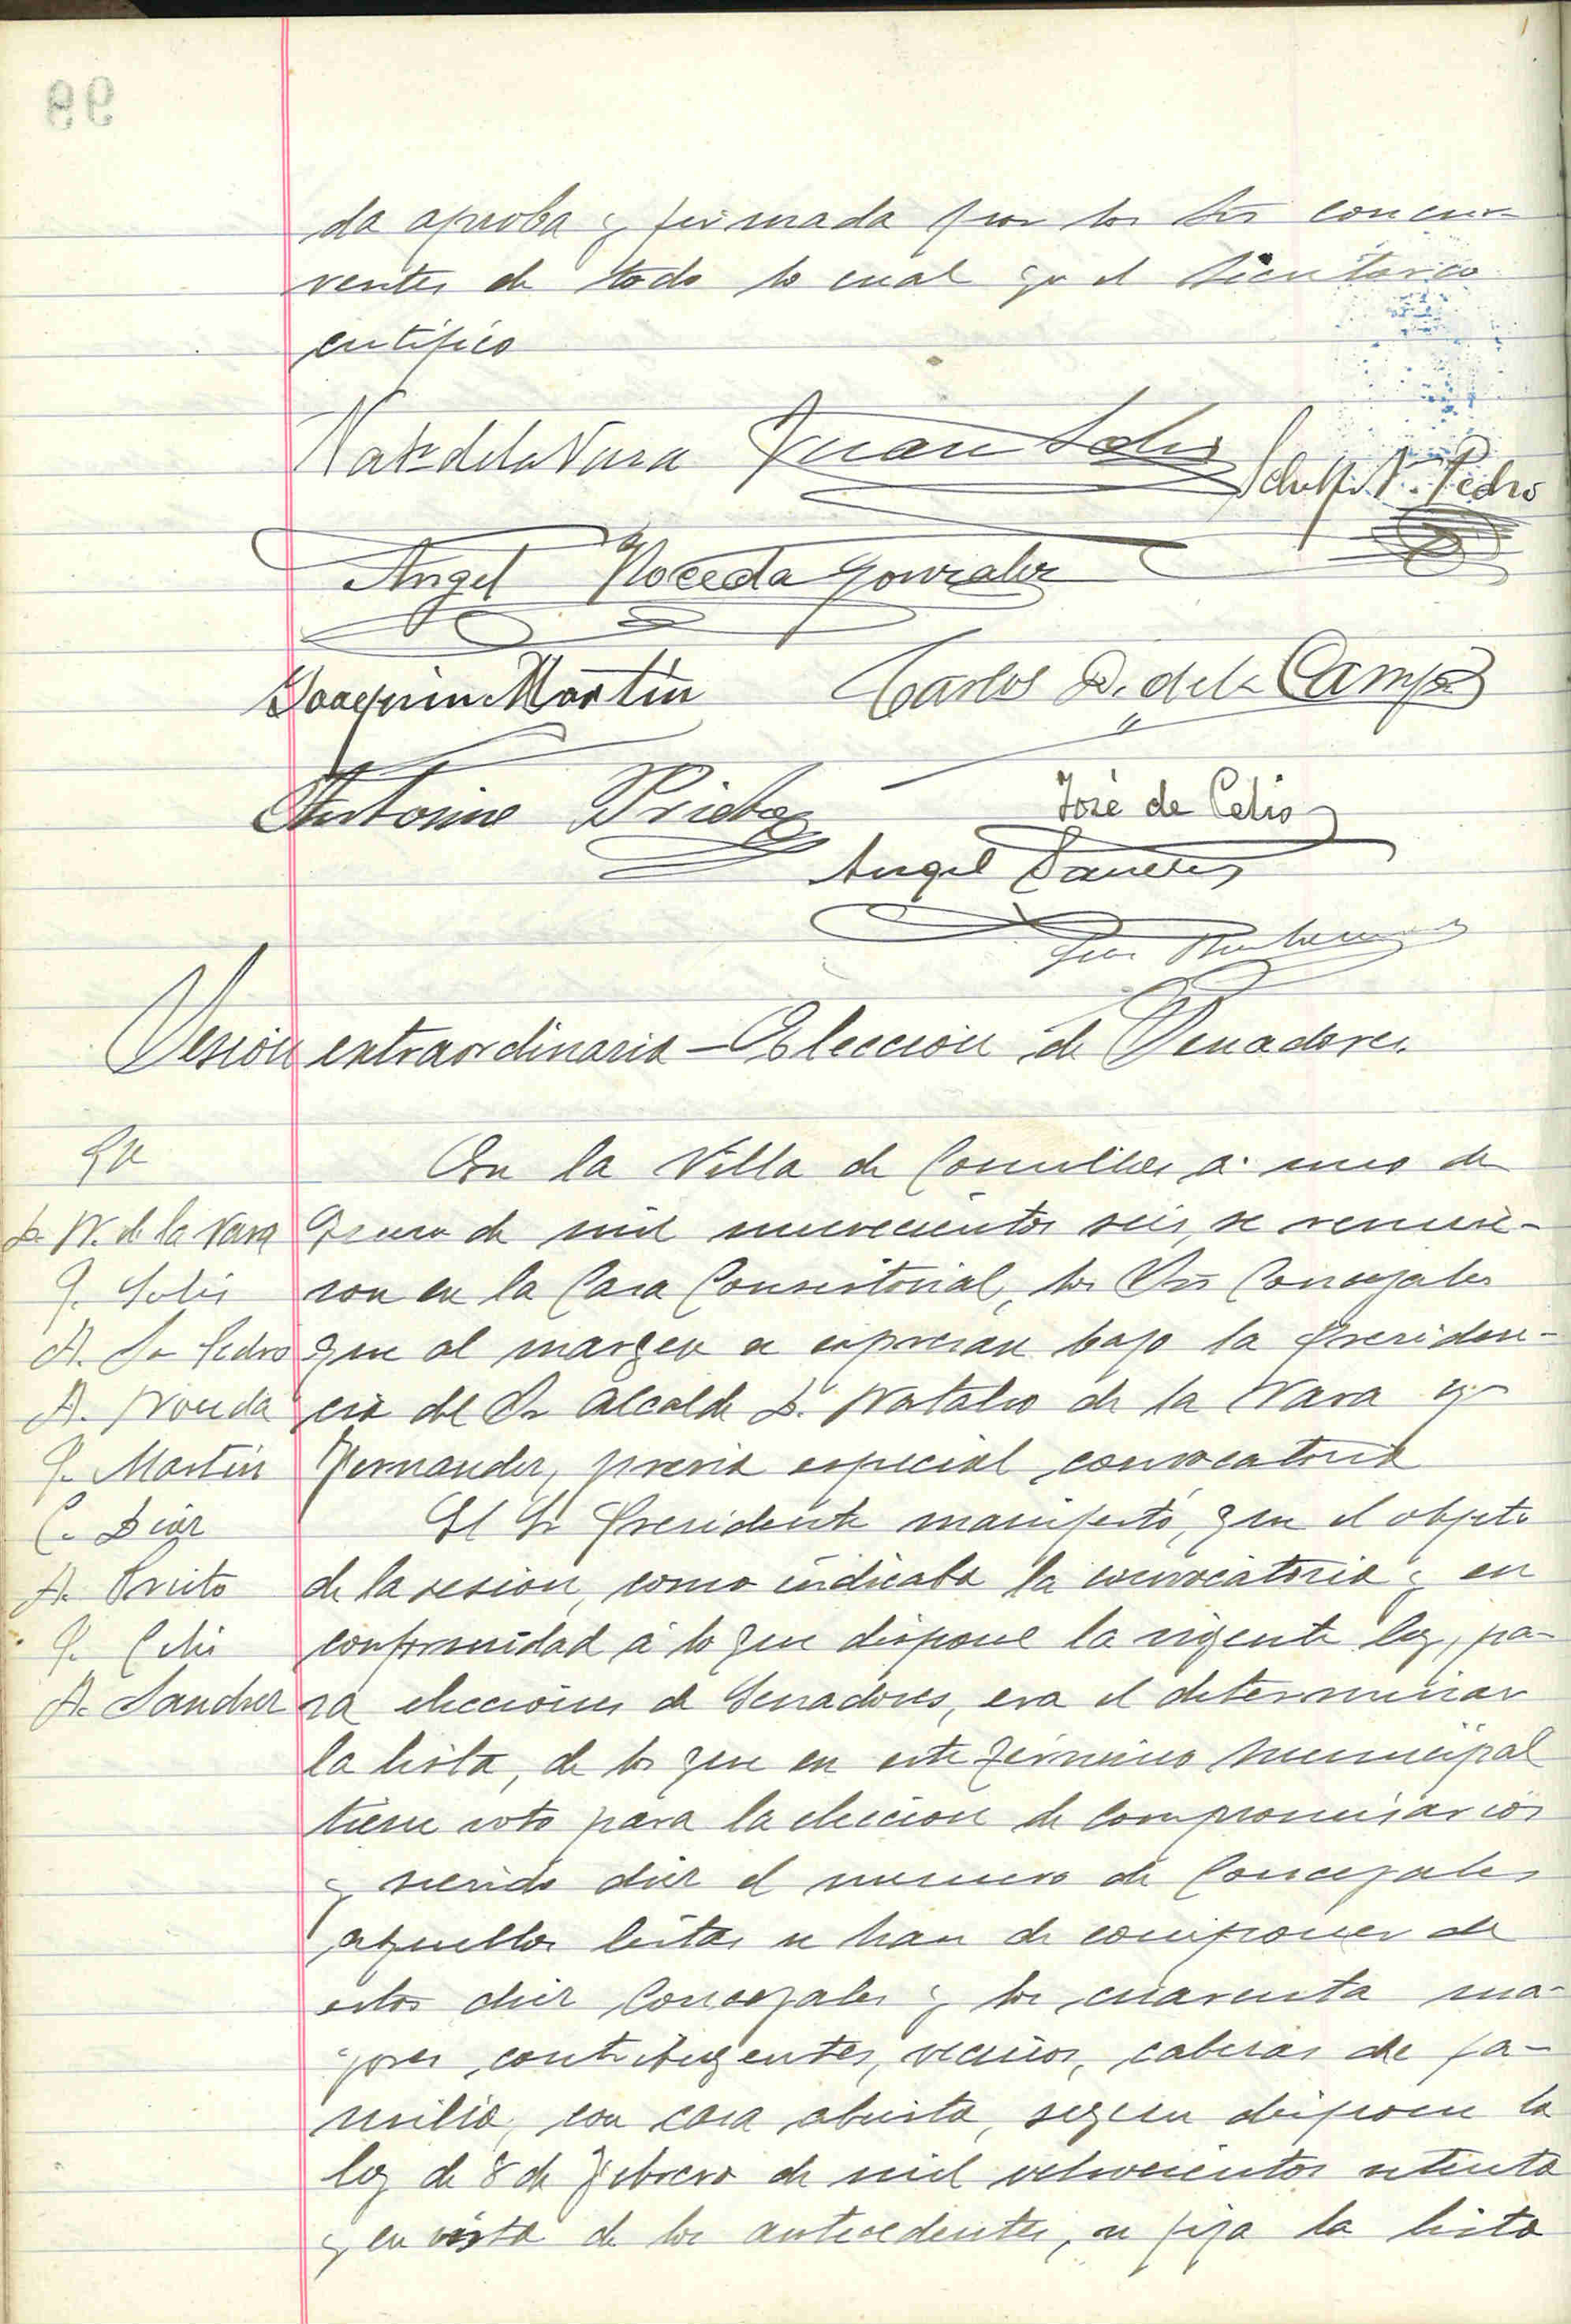 da aproba y firmada por los Srs concu-
rrentes de todo lo cual yo el Secretario
certifico
Nat. de la Vara Juan Solis
Adolfo S. Pedro
Angel Noceda Gonzalez
Joaquin Martin Carlos D. de la Campa
Antonino Prieto José de Celis
Angel Sanchez
Sesión extraordinaria - Eleccion de Senadores.
En la Villa de Comillas a uno de
D. N. de la Vara
Enero de mil novecientos seis, se reunie-
J. Solis
ron en la Casa Consistorial, los Srs Concejales
A. Sn Pedro
que al margen se expresan bajo la Presiden-
A. Noceda
cia del Sr Alcalde D. Natalio de la Vara y
J. Martin
Fernandez, previa especial convocatoria
C. Diaz
El Sr Presidente manifestó, que el objeto
A. Prieto
de la sesion, como indicaba la convocatoria y en
J. Celis
conformidad á lo que dispone la vigente ley, pa-
A. Sanchez
ra elecciones de Senadores, era el determinar
la lista, de los que en este Término Municipal
tiene voto para la eleccion de Compromisarios
y siendo diez el numero de Concejales
aquellas listas se han de componer de
estos diez Concejales y los cuarenta ma-
yores contribuyentes, vecinos, cabezas de fa-
milia, con casa abierta, segun dispone la
ley de 8 de Febrero de mil ochocientos setenta
y en vista de los antecedentes, se fija la lista